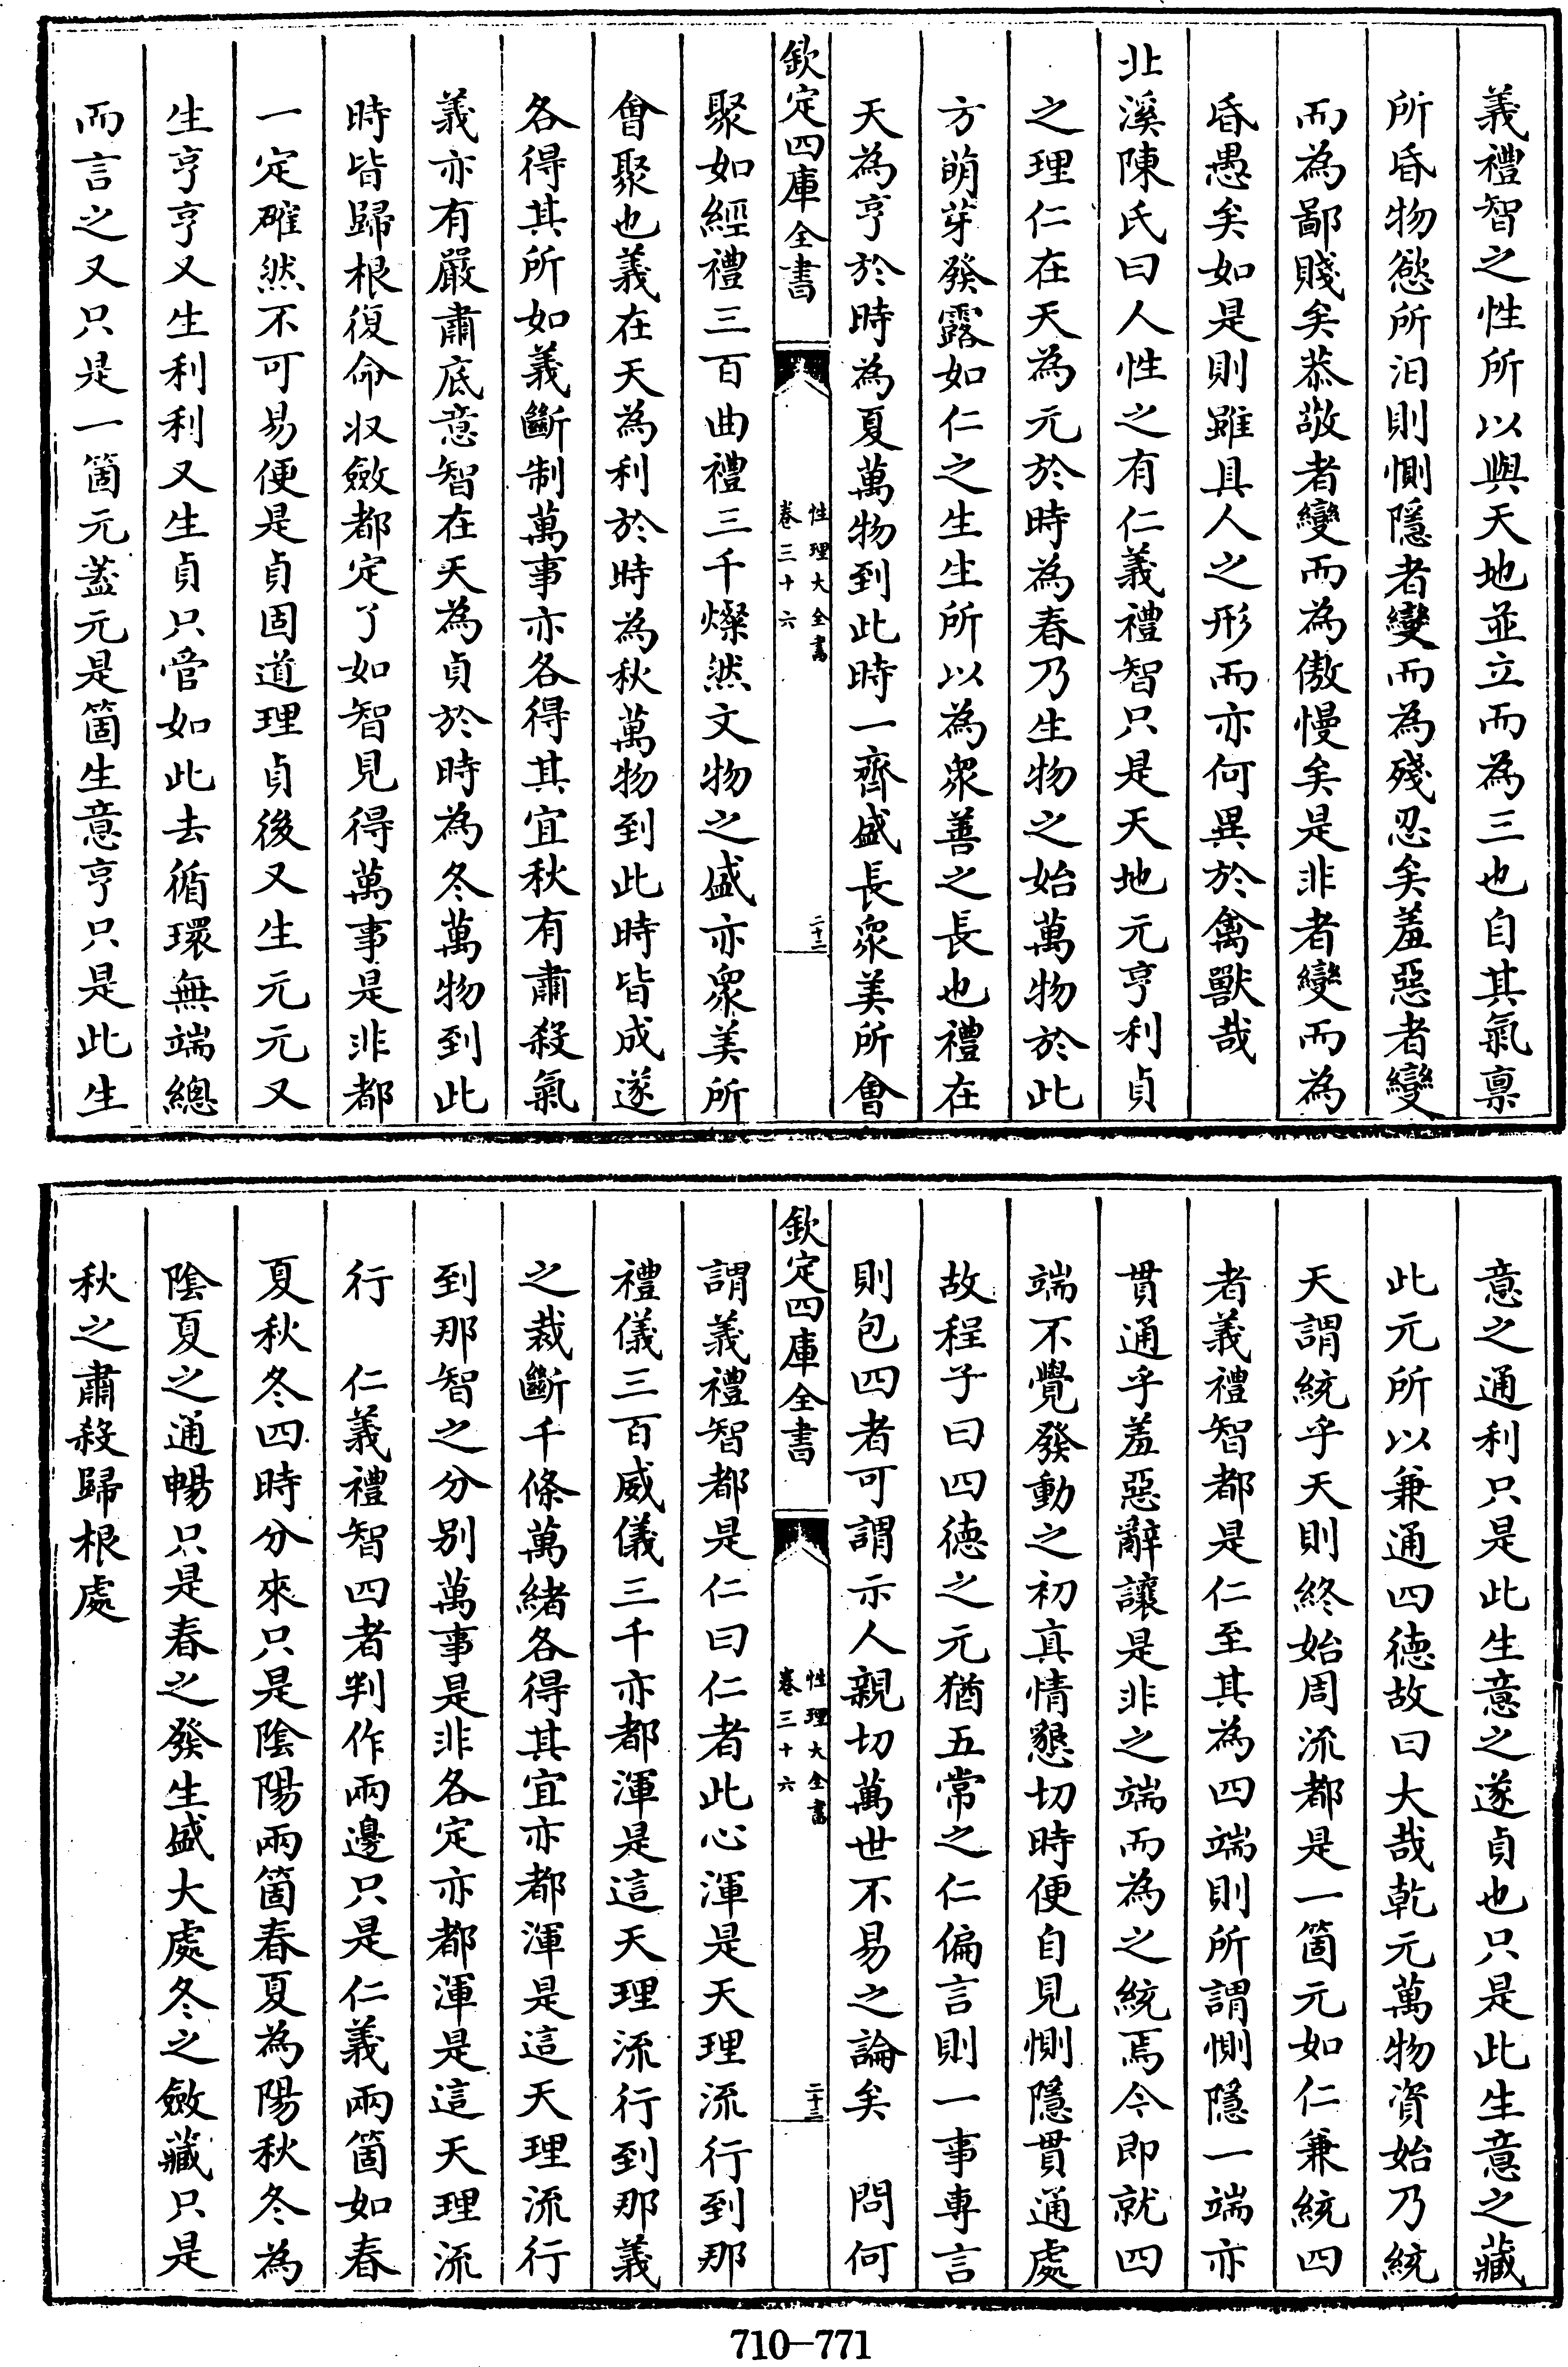 義禮智之性所以與天地並立而為三也自其氣禀
所昏物慾所汨則惻隱者變而為殘忍矣羞惡者變
而為鄙賤矣恭敬者變而為傲慢矣是非者變而為
昏愚矣如是則雖具人之形而亦何異於禽獸哉
北溪陳氏曰人性之有仁義禮智只是天地元亨利貞
之理仁在天為元於時為春乃生物之始萬物於此
方萌芽發露如仁之生生所以為衆善之長也禮在
天為亨於時為夏萬物到此時一齊盛長衆美所會
欽定四庫全書
性理大全書
卷三十六
二十二
聚如經禮三百曲禮三千燦然文物之盛亦衆美所
會聚也義在天為利於時為秋萬物到此時皆成遂
各得其所如義斷制萬事亦各得其宜秋有肅殺氣
義亦有嚴肅底意智在天為貞於時為冬萬物到此
時皆歸根復命收斂都定了如智見得萬事是非都
一定確然不可易便是貞固道理貞後又生元元又
生亨亨又生利利又生貞只管如此去循環無端總
而言之又只是一箇元蓋元是箇生意亨只是此生
意之通利只是此生意之遂貞也只是此生意之藏
此元所以兼通四德故曰大哉乾元萬物資始乃統
天謂統乎天則終始周流都是一箇元如仁兼統四
者義禮智都是仁至其為四端則所謂惻隱一端亦
貫通乎羞惡辭讓是非之端而為之統焉今即就四
端不覺發動之初真情懇切時便自見惻隱貫通處
故程子曰四德之元猶五常之仁偏言則一事專言
則包四者可謂示人親切萬世不易之論矣　問何
欽定四庫全書
性理大全書
卷三十六
二十三
謂義禮智都是仁曰仁者此心渾是天理流行到那
禮儀三百威儀三千亦都渾是這天理流行到那義
之裁斷千條萬緒各得其宜亦都渾是這天理流行
到那智之分别萬事是非各定亦都渾是這天理流
行　仁義禮智四者判作兩邊只是仁義兩箇如春
夏秋冬四時分來只是陰陽兩箇春夏為陽秋冬為
陰夏之通暢只是春之發生盛大處冬之斂藏只是
秋之肅殺歸根處
710—771